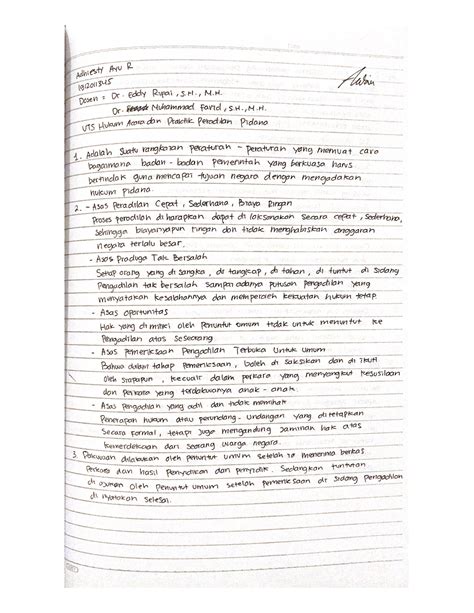 Adhiesty Ayu R
Dosen = Dr. Eddy Rifai, S.H., M.H.
Dr. Muhammad Farid, S.H., M.H.
UTS Hukum Acara dan Praktik Peradilan Pidana
1. Adalah suatu rangkaian peraturan - peraturan yang memuat cara
bagaimana badan - badan pemerintah yang berkuasa harus
bertindak guna mencapai tujuan negara dengan mengadakan
hukum pidana.
2. - Asas Peradilan Cepat, Sederhana, Biaya Ringan
Proses peradilan di harapkan dapat di laksanakan secara cepat, sederhana,
sehingga biayanyapun ringan dan tidak menghabiskan anggaran
negara terlalu besar.
- Asas Praduga Tak Bersalah
Setiap orang yang di sangka, di tangkap, di tahan, di tuntut di sidang
Pengadilan tak bersalah sampai adanya putusan pengadilan yang
menyatakan kesalahannya dan memperoleh kekuatan hukum tetap
- Asas oportunitas
Hak yang di miliki oleh Penuntut umum tidak untuk menuntut ke
Pengadilan atas seseorang
- Asas Pemeriksaan Pengadilan Terbuka Untuk Umum
Bahwa dalam tahap pemeriksaan, boleh di saksikan dan di ikuti
oleh siapapun, kecuali dalam perkara yang menyangkut kesusilaan
dan perkara yang terdakwanya anak - anak.
- Asas Pengadilan yang adil dan tidak memihak
Penerapan hukum atau perundang - undangan yang ditetapkan
secara formal, tetapi juga mengandung jaminan hak atas
kemerdekaan dari seorang warga negara.
3. dilakukan oleh penuntut umum setelah ia menerima berkas
Perkara dan hasil Penyidikan dari penyidik. Sedangkan tuntutan
di ajukan oleh Penuntut umum setelah pemeriksaan di sidang pengadilan
di nyatakan selesai.